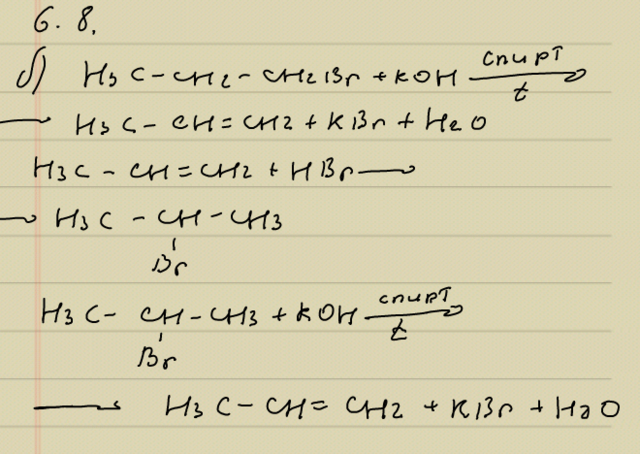 6. 8.
б) H3C-CH2-CH2Br+KOH спирт t →
→ H3C-CH=CH2+KBr+H2O
H3C-CH=CH2+HBr→
→ H3C-CH-CH3
Br
H3C-CH-CH3+KOH спирт t →
Br
→ H3C-CH=CH2+KBr+H2O